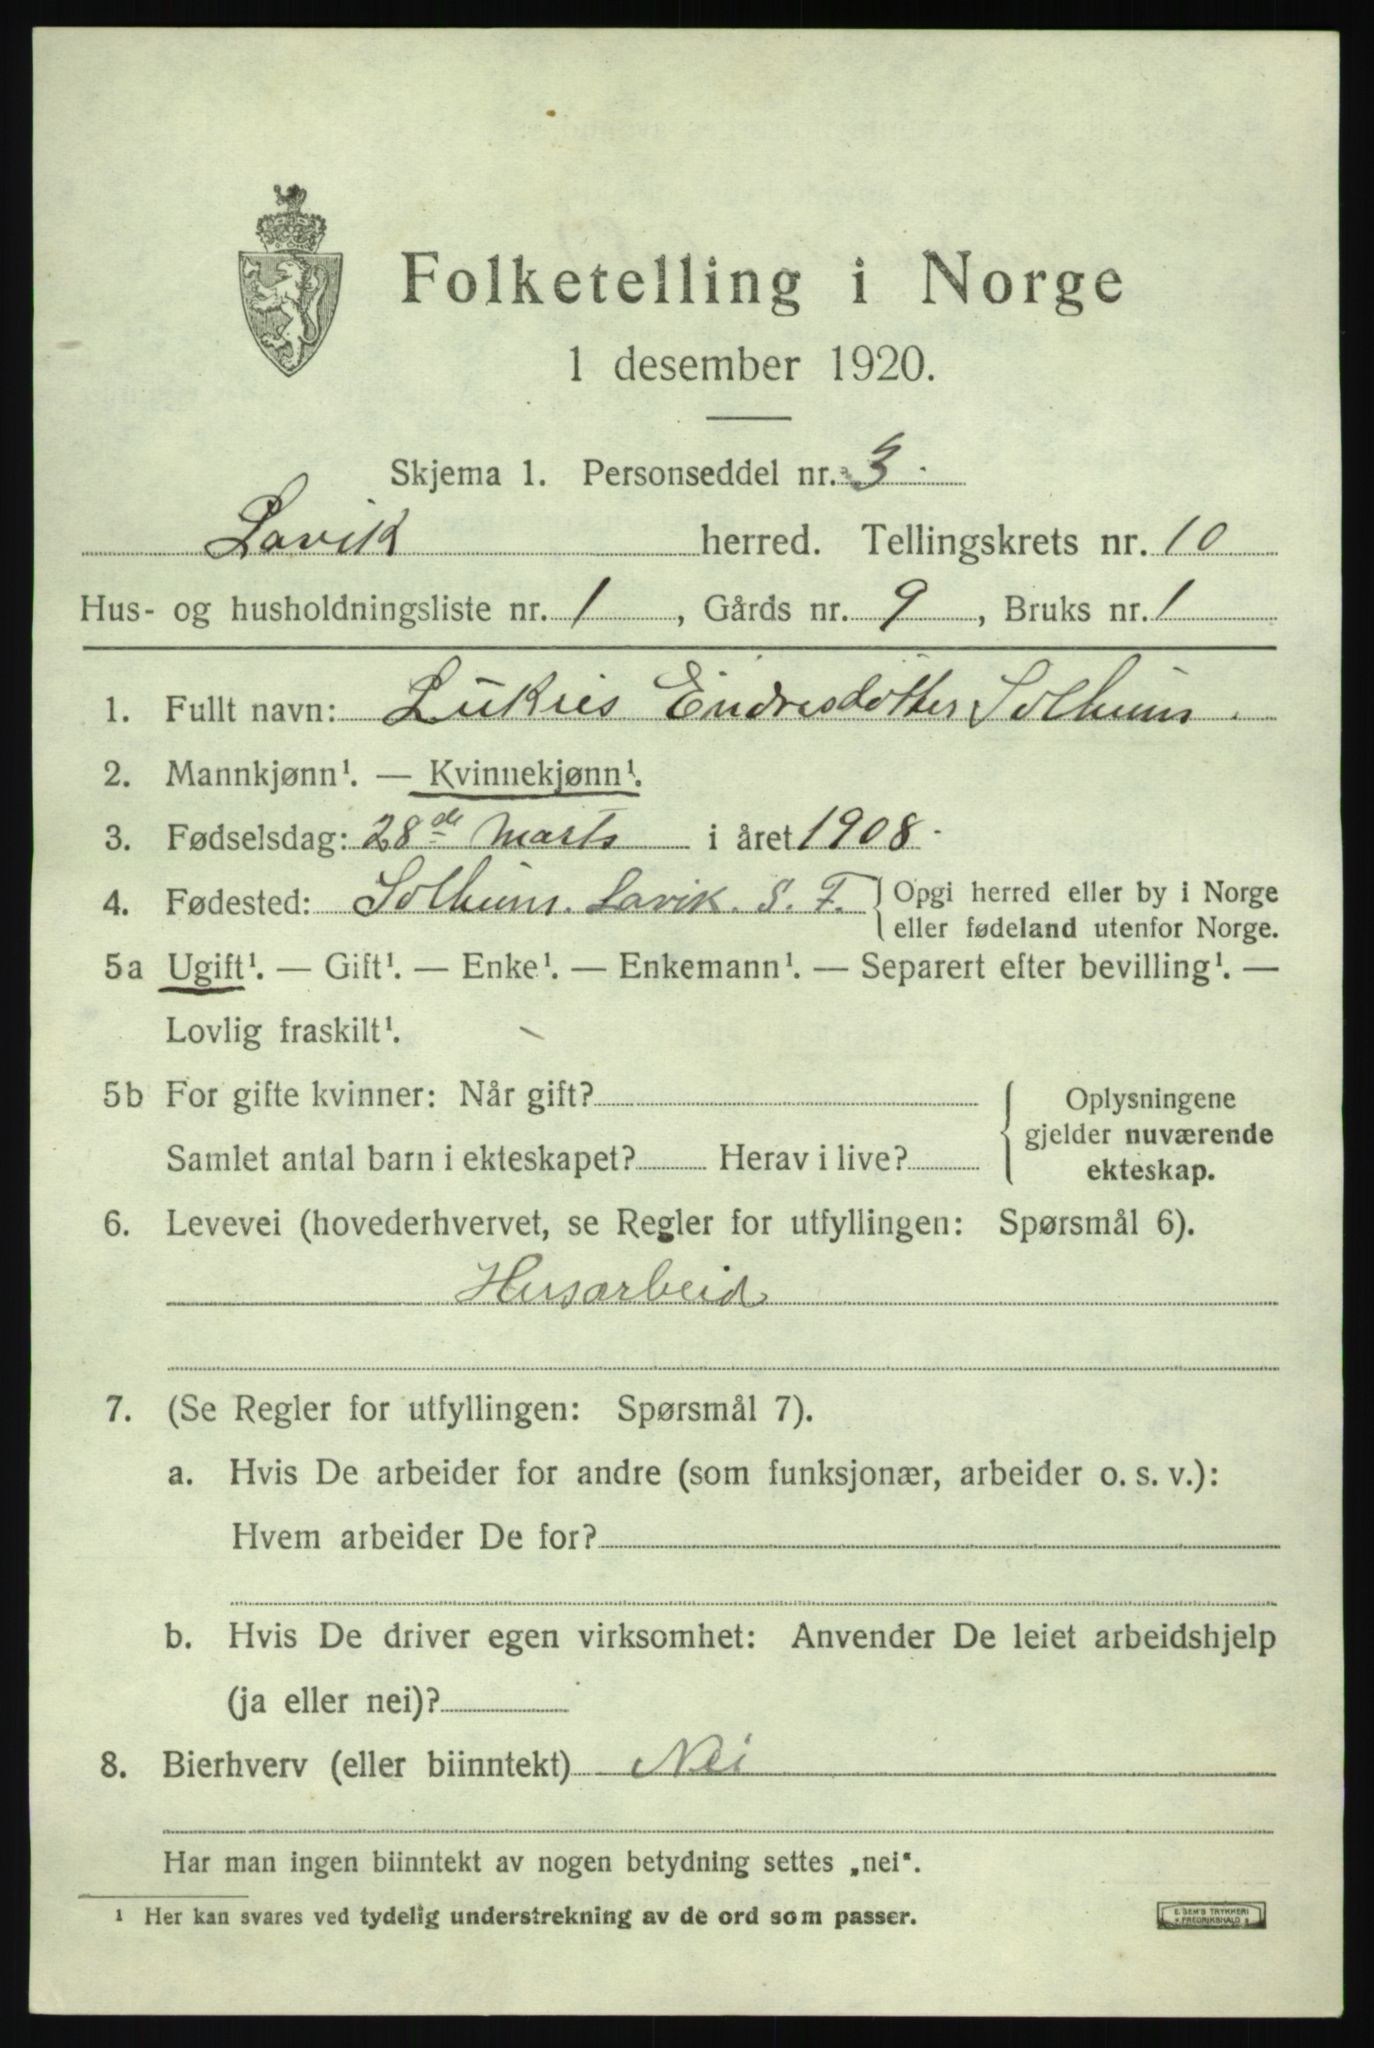 Folketelling i Norge
1 desember 1920.
Skjema 1. Personseddel nr. 3.
Lavik herred. Tellingskrets nr. 10
Hus- og husholdningsliste nr. 1, Gårds nr. 9, Bruks nr. 1
1. Fullt navn: Lukris Eindresdotter Solheim.
2. Mannkjønn¹. — Kvinnekjønn¹.
3. Fødselsdag: 28de Marts i året 1908.
4. Fødested: Solheim. Lavik. S. F. Opgi herred eller by i Norge
eller fødeland utenfor Norge.
5a Ugift¹. — Gift¹. — Enke¹. — Enkemann¹. — Separert efter bevilling¹. —
Lovlig fraskilt¹.
5b For gifte kvinner: Når gift?
Samlet antal barn i ekteskapet? Herav i live?
Oplysningene
gjelder nuværende
ekteskap.
6. Levevei (hovederhvervet, se Regler for utfyllingen: Spørsmål 6).
Husarbeid
7. (Se Regler for utfyllingen: Spørsmål 7).
a. Hvis De arbeider for andre (som funksjonær, arbeider o. s. v.):
Hvem arbeider De for?
b. Hvis De driver egen virksomhet: Anvender De leiet arbeidshjelp
(ja eller nei)?
8. Bierhverv (eller biinntekt) Nei
Har man ingen biinntekt av nogen betydning settes „nei“.
¹ Her kan svares ved tydelig understrekning av de ord som passer.
E. SEM'S TRYKKERI
FREDRIKSHALD